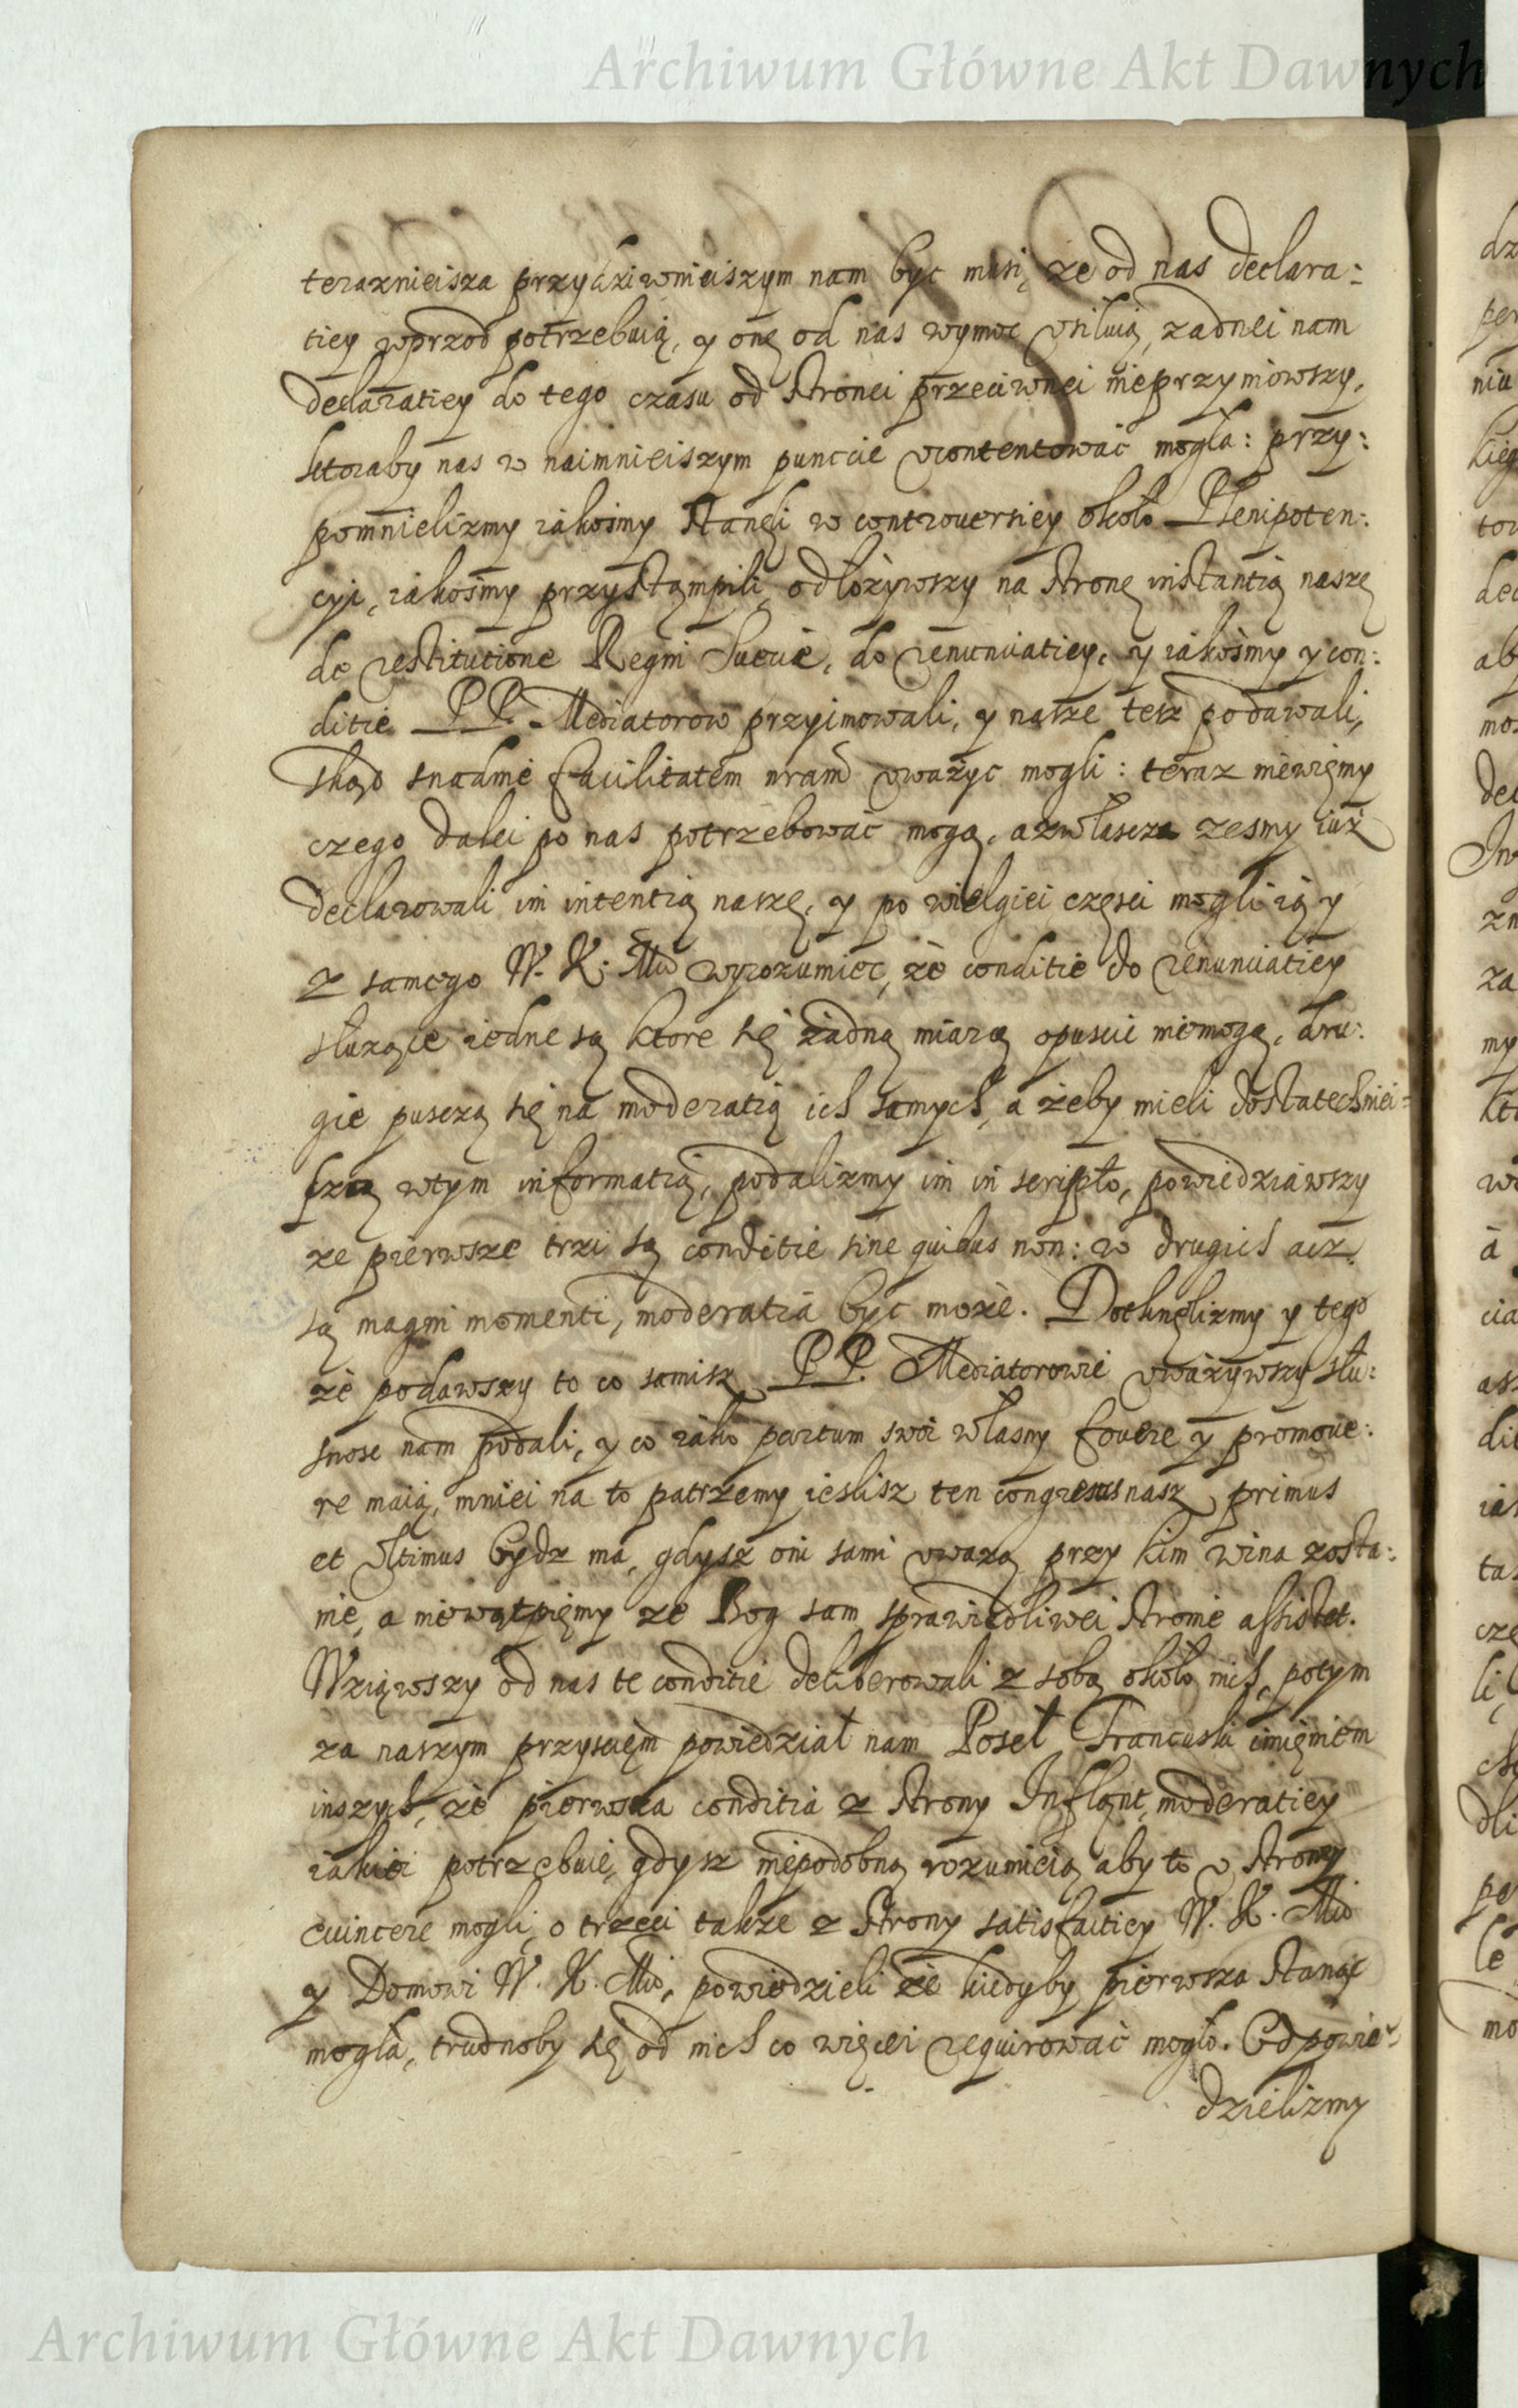 Archiwum Główne Akt Dawnych
teraznieisza przydziwnieiszym nam byc musi, ze od nas declara:
tiey wprzod potrzebuią, y onę od nas wymoc vsiluią, zadnei nam
declaratiey do tego czasu od stronei przeciwnei nieprzyniowszy,
ktoraby nas w naimnieiszym punccie vcontentować mogła: przy:
pomnielizmy iakosmy stanęli w controuersiey około Plenipoten:
cyi, iakosmy przystąmpili, odłożywszy na stronę instantią naszę
de restitutione Regni Sueciæ, do renunciatiey, y iakosmy y con:
ditie PP. Mediatorow przyimowali, y nasze tesz podawali,
skąd snadnie facilitatem nram vważyc mogli: teraz niewiemy
czego dalei po nas potrzebować mogą, azwłascza zesmy iuż
declarowali im intentią naszę, y po wielgiei częsci mogli ią y
z samego W. K. Mci wyrozumiec, że conditie do renunciatiey
służące iedne są ktore się żadną miarą opuscic niemogą, dru:
gie pusczą się na moderatią ich samych, a żeby mieli dostatechniei:
szą wtym informatią, podalizmy im in scripto, powiedziawszy
ze pierwsze trzi są conditie sine quibus non: w drugich acz
są magni momenti, moderatia byc może. Dotknęlizmy y tego
że podawszy to co samisz PP. Mediatorowie vważywszy słu:
snosc nam podali, y co iako partum swoi własny fouere y promoue:
re maią, mniei na to patrzemy ieslisz ten congressus nasz primus
et vltimus bydz ma, gdysz oni sami vważą przy kim wina zosta:
nie, a niewątpięmy ze Bog sam sprawiedliwei stronie assistet.
Wziąwszy od nas te conditie deliberowali z sobą około nich, potym
za naszym przysciem powiedział nam Poseł Francuski imięniem
inszych, że pierwsza conditia z strony Inflant, moderatiey
iakiei potrzebuie, gdysz niepodobną rozumieią aby to v strony
euincere mogli, o trzeci także z strony satisfactiey W. K. Mci
y Domowi W. K. Mci, powiedzieli że kiedyby pierwsza stanąć
mogła, trudnoby się od nich co więcei requirować mogło. Odpowie:
dzielizmy
Archiwum Główne Akt Dawnych